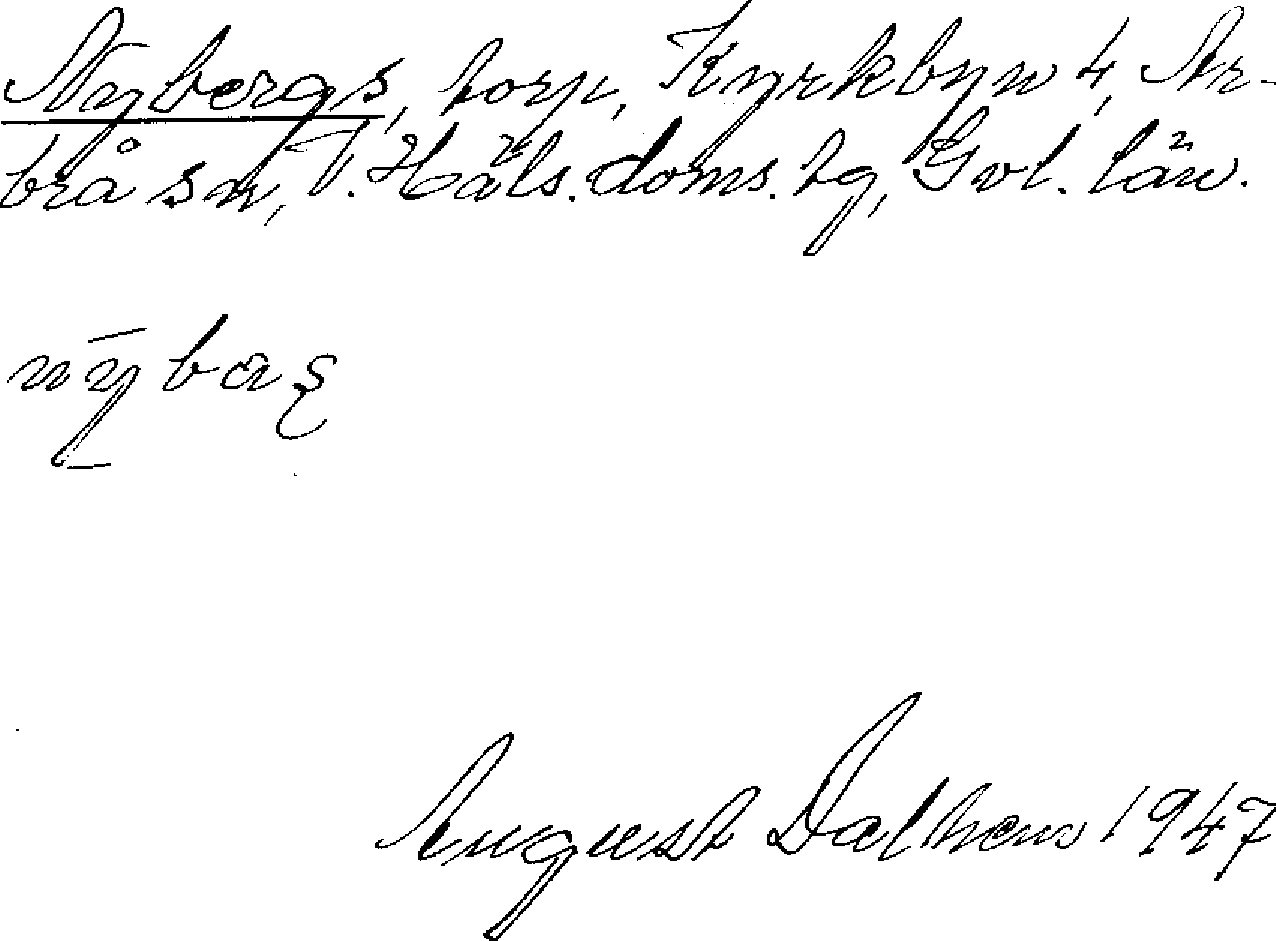 Nybergs, torp, Kyrkbyn 4, Ar-
brå sn, V. Häls. doms. tg, Gvl. län.
August Dalhem 1947